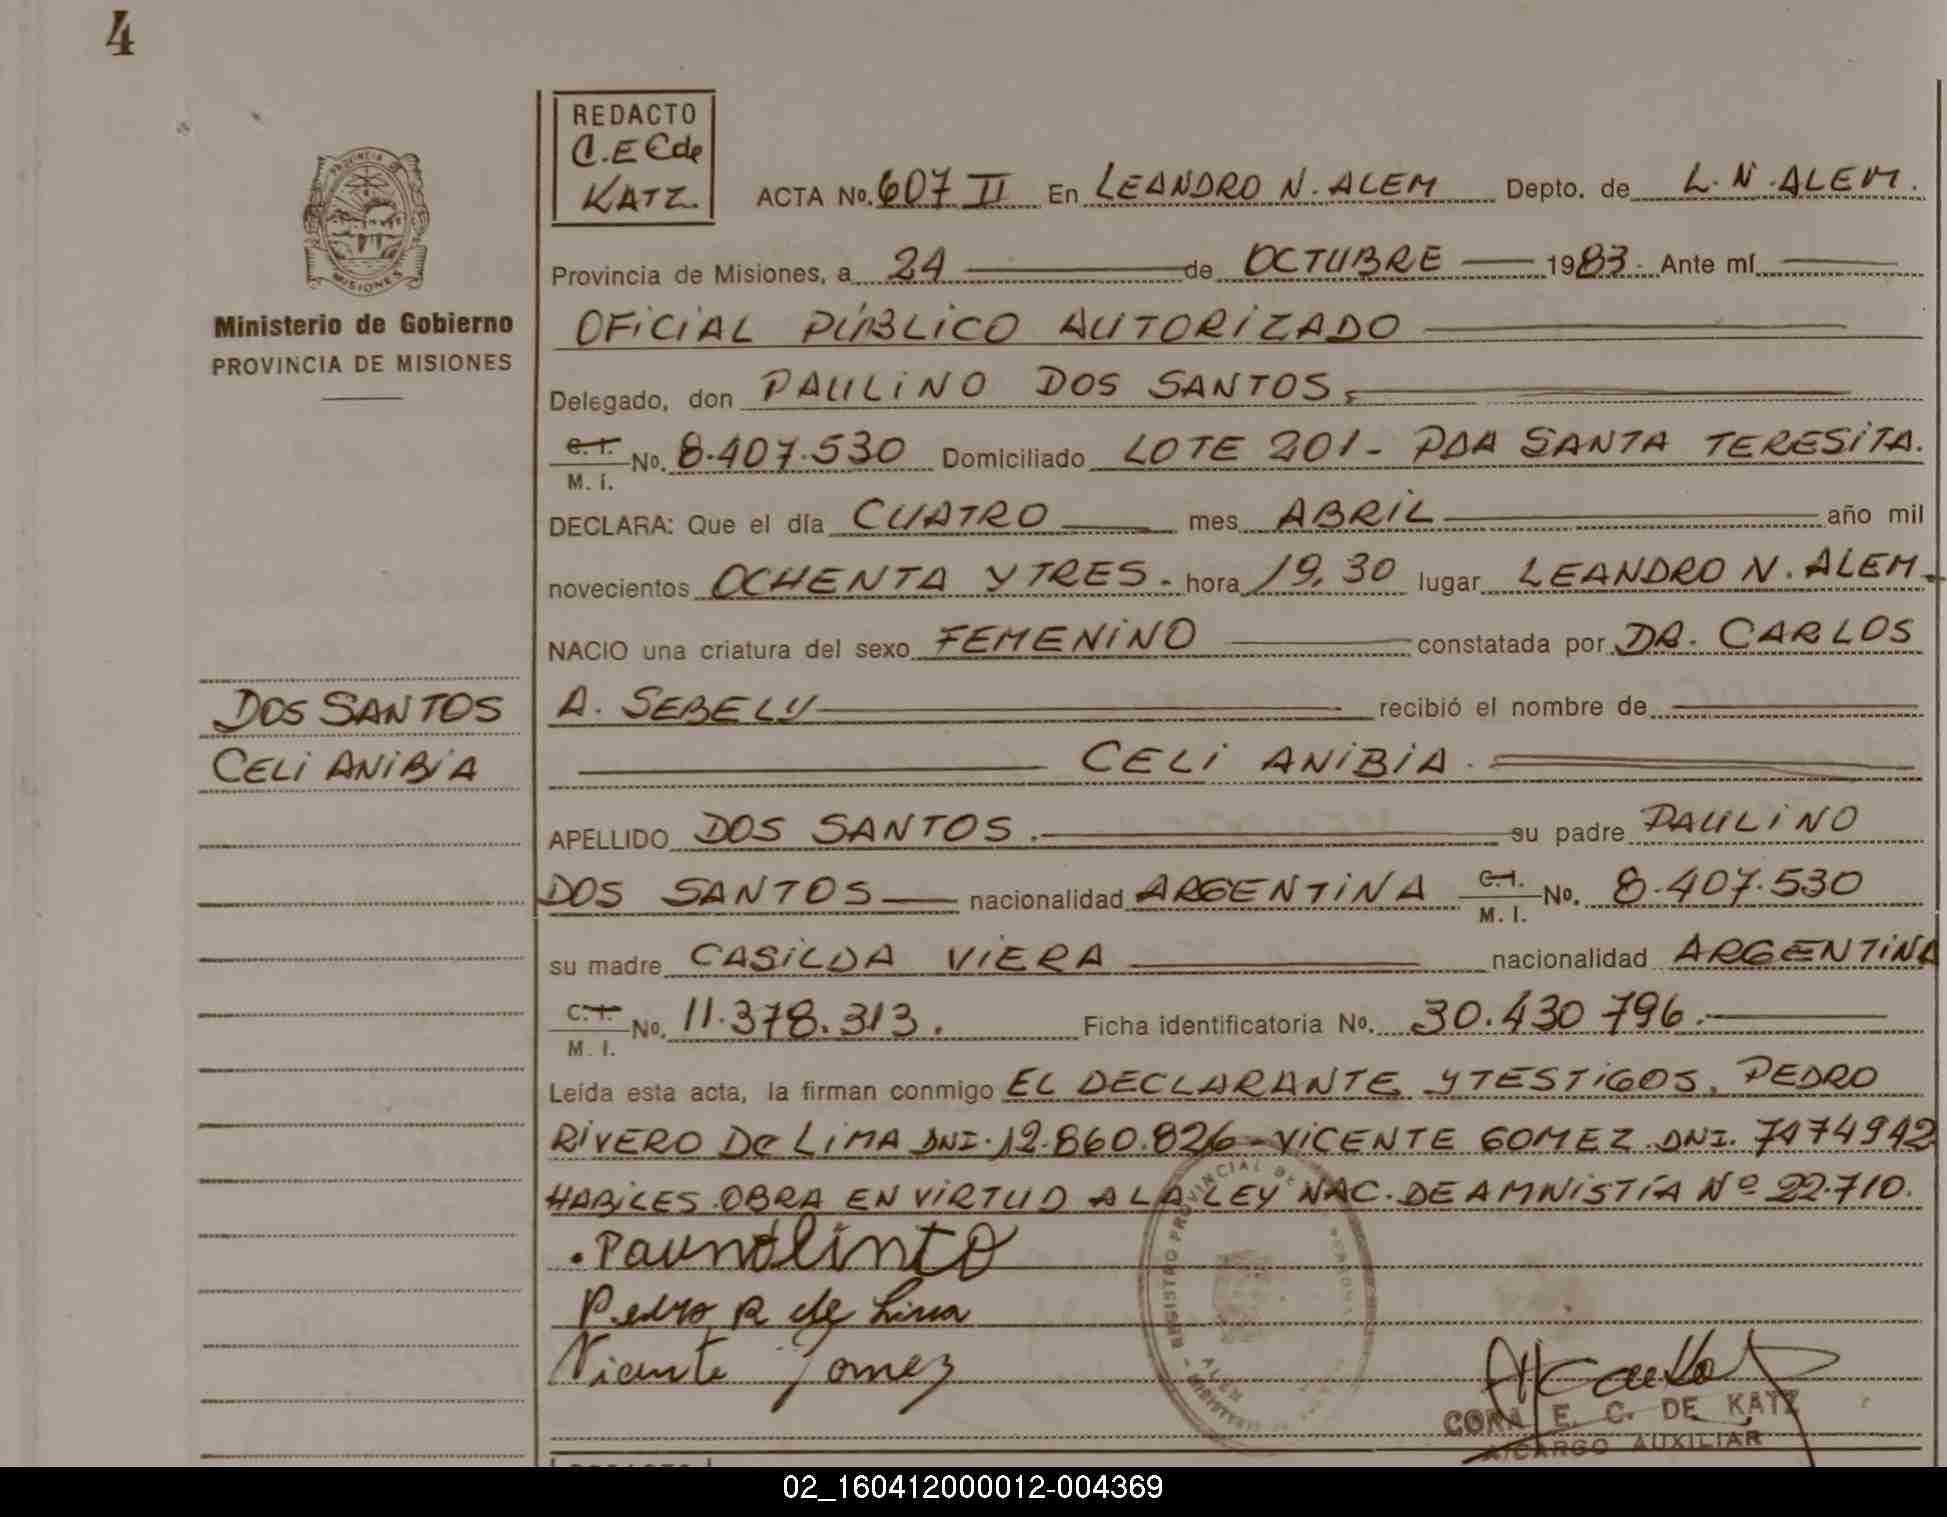 4
REDACTO
C.E C de
KATZ.
ACTA No. 607 II En LEANDRO N. ALEM Depto. de L. N. ALEM.
PROVINCIA DE
MISIONES
Ministerio de Gobierno
PROVINCIA DE MISIONES
Provincia de Misiones, a 24 de OCTUBRE 1983. Ante mí
OFICIAL PÚBLICO AUTORIZADO
Delegado, don PAULINO DOS SANTOS,
C. I.
M. I. No. 8.407.530 Domiciliado LOTE 201 - PDA SANTA TERESITA.
DECLARA: Que el día CUATRO mes ABRIL año mil
novecientos OCHENTA Y TRES. hora 19,30 lugar LEANDRO N. ALEM.
NACIO una criatura del sexo FEMENINO constatada por DR. CARLOS
A. SEBELY recibió el nombre de
DOS SANTOS
CELI ANIBIA
CELI ANIBIA.
APELLIDO DOS SANTOS. su padre PAULINO
DOS SANTOS nacionalidad ARGENTINA C. I. M. I. No. 8.407.530
su madre CASILDA VIERA nacionalidad ARGENTINA
C. I.
M. I. No. 11.378.313. Ficha identificatoria No. 30.430 796.
Leída esta acta, la firman conmigo EL DECLARANTE Y TESTIGOS, PEDRO
RIVERO De LIMA DNI. 12.860.826 - VICENTE GOMEZ DNI. 7474942
HABILES. OBRA EN VIRTUD A LA LEY NAC. DE AMNISTÍA Nº 22.710.
Pedro R de Lima
Vicente Gomez
REGISTRO PROVINCIAL DE
ALEM
MISIONES
E. C. DE KATZ
A CARGO AUXILIAR
02_160412000012-004369